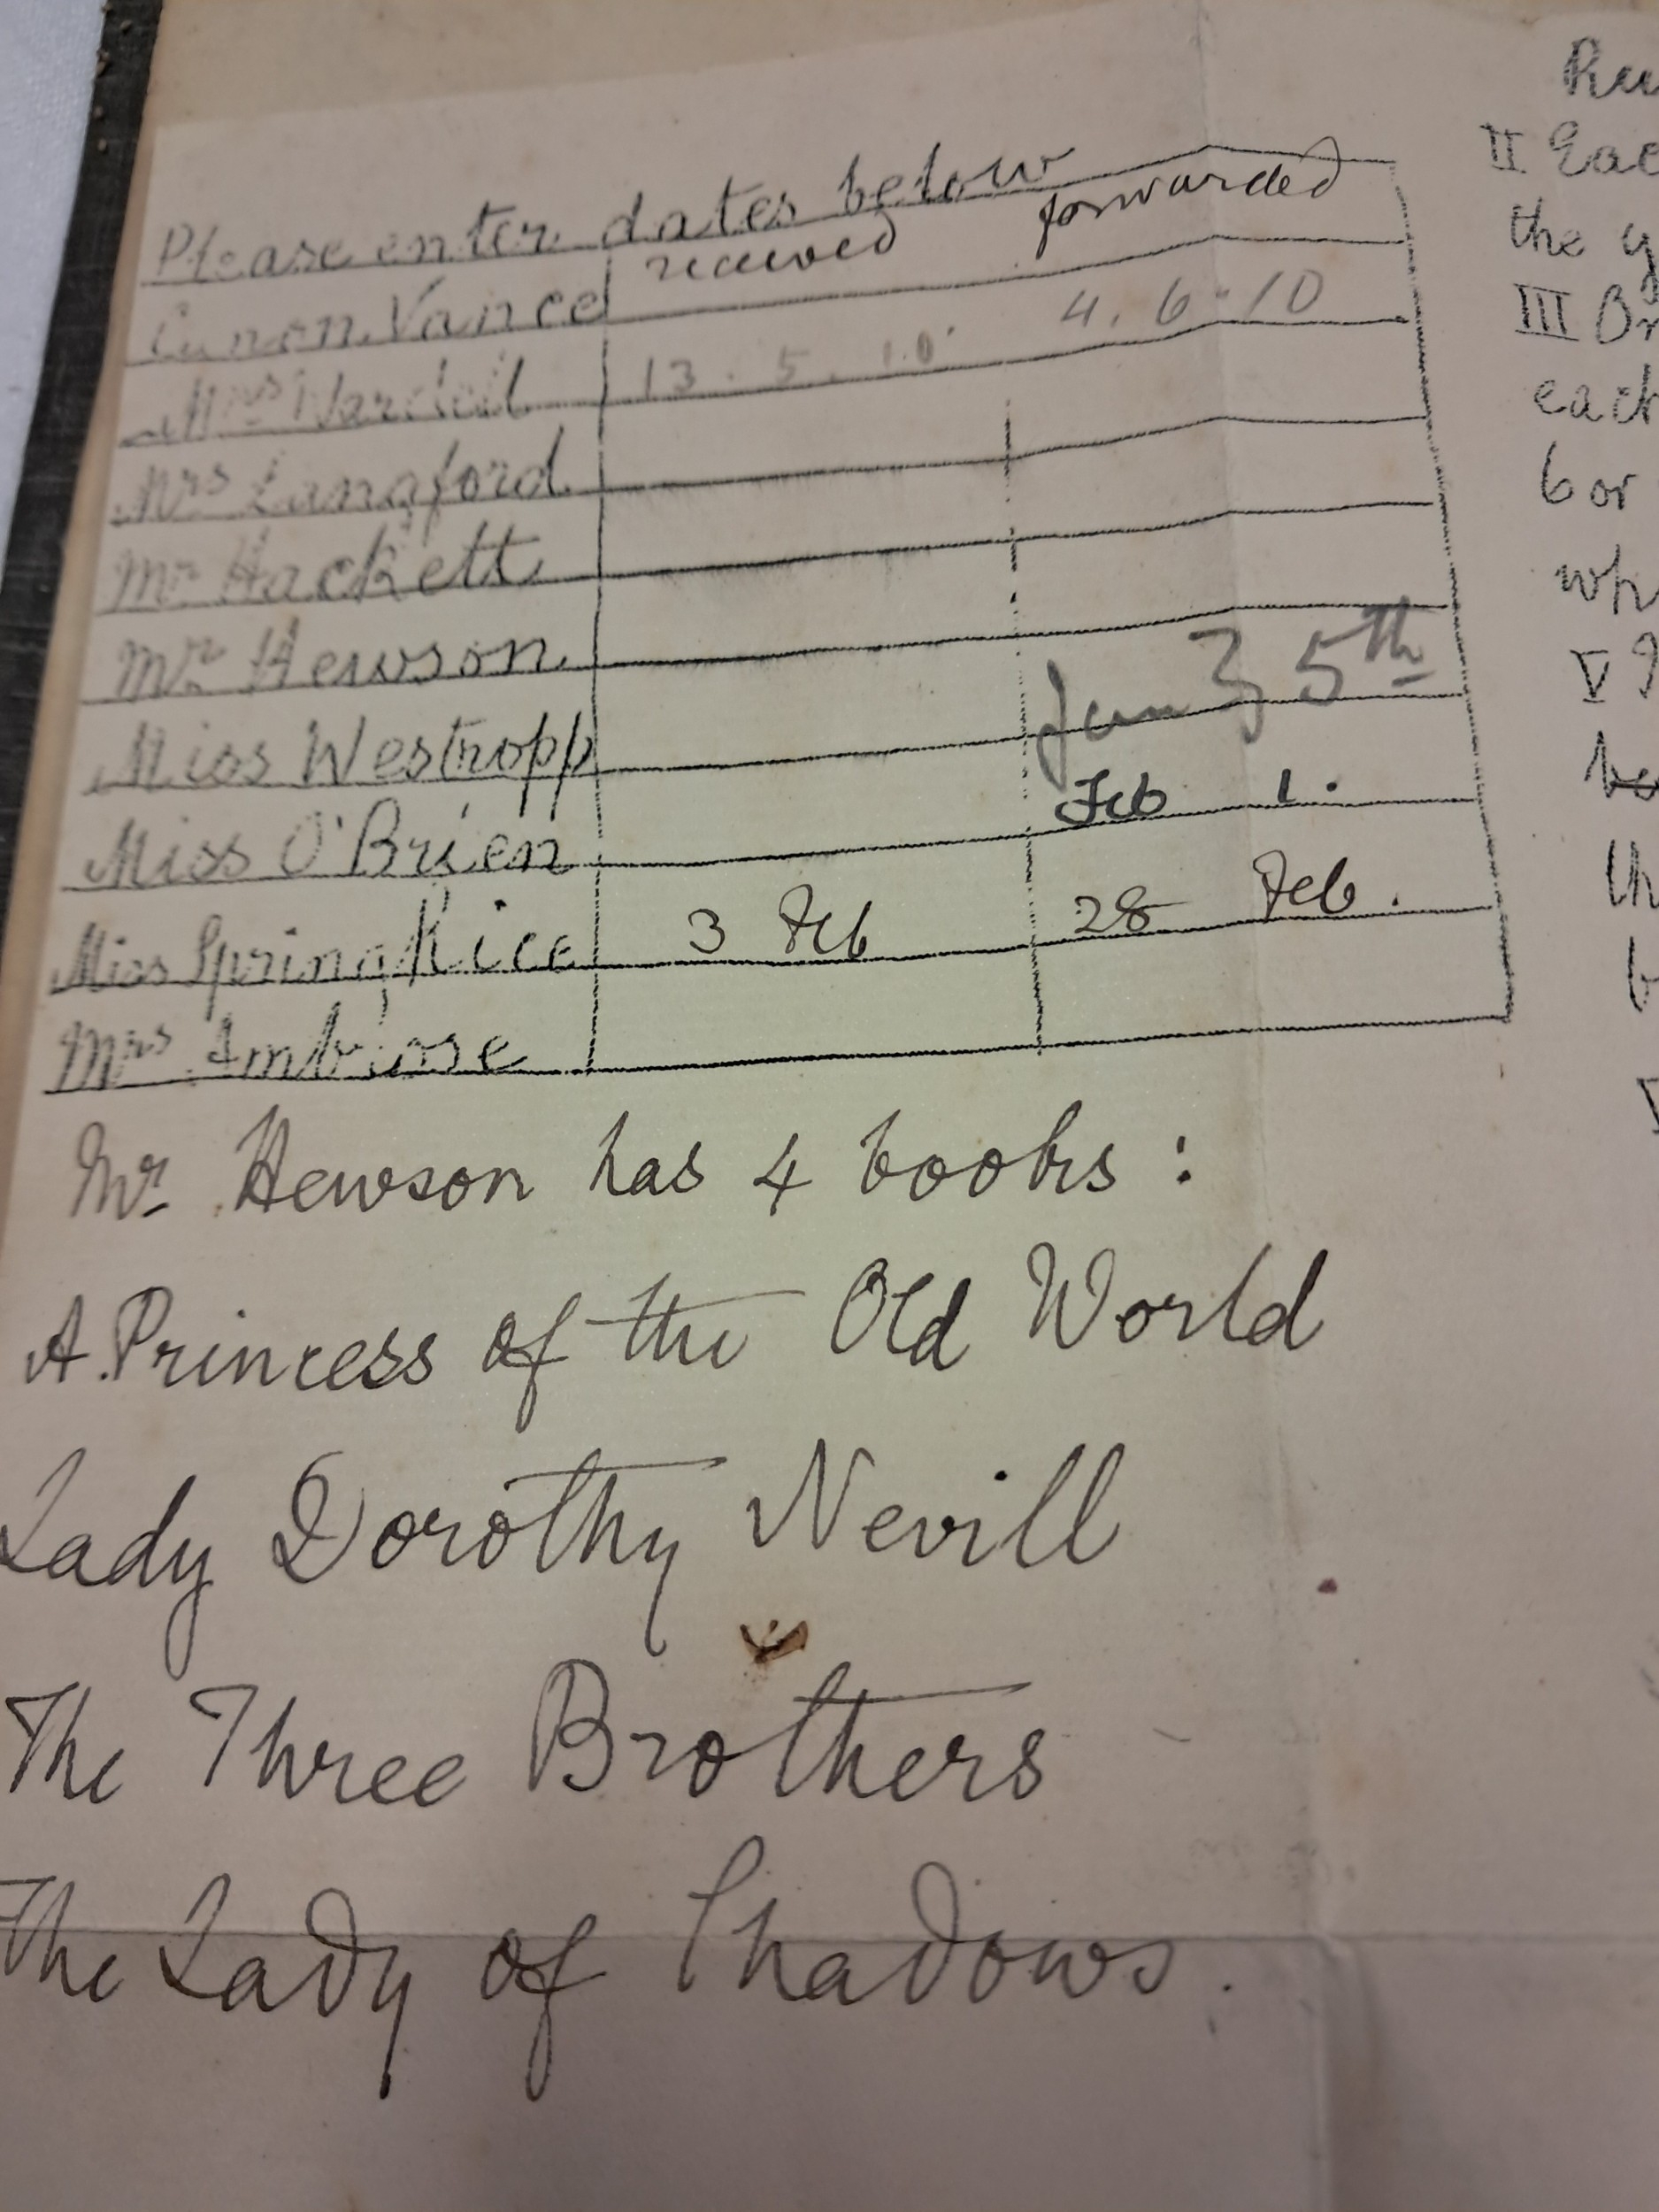 Please enter dates below
received forwarded
Canon Vance
Mrs Wardell 13.5.10 4.6.10
Mrs Langford
Mr Hackett
Mr Hewson
Miss Westropp Jan 5th
Miss O'Brien Feb 1.
Miss Spring Rice 3 Feb 28 Feb.
Mrs Ambrose
Mr Hewson has 4 books:
A Princess of the Old World
Lady Dorothy Nevill
The Three Brothers
The Lady of Shadows.
II
the
III
each
6 or
V